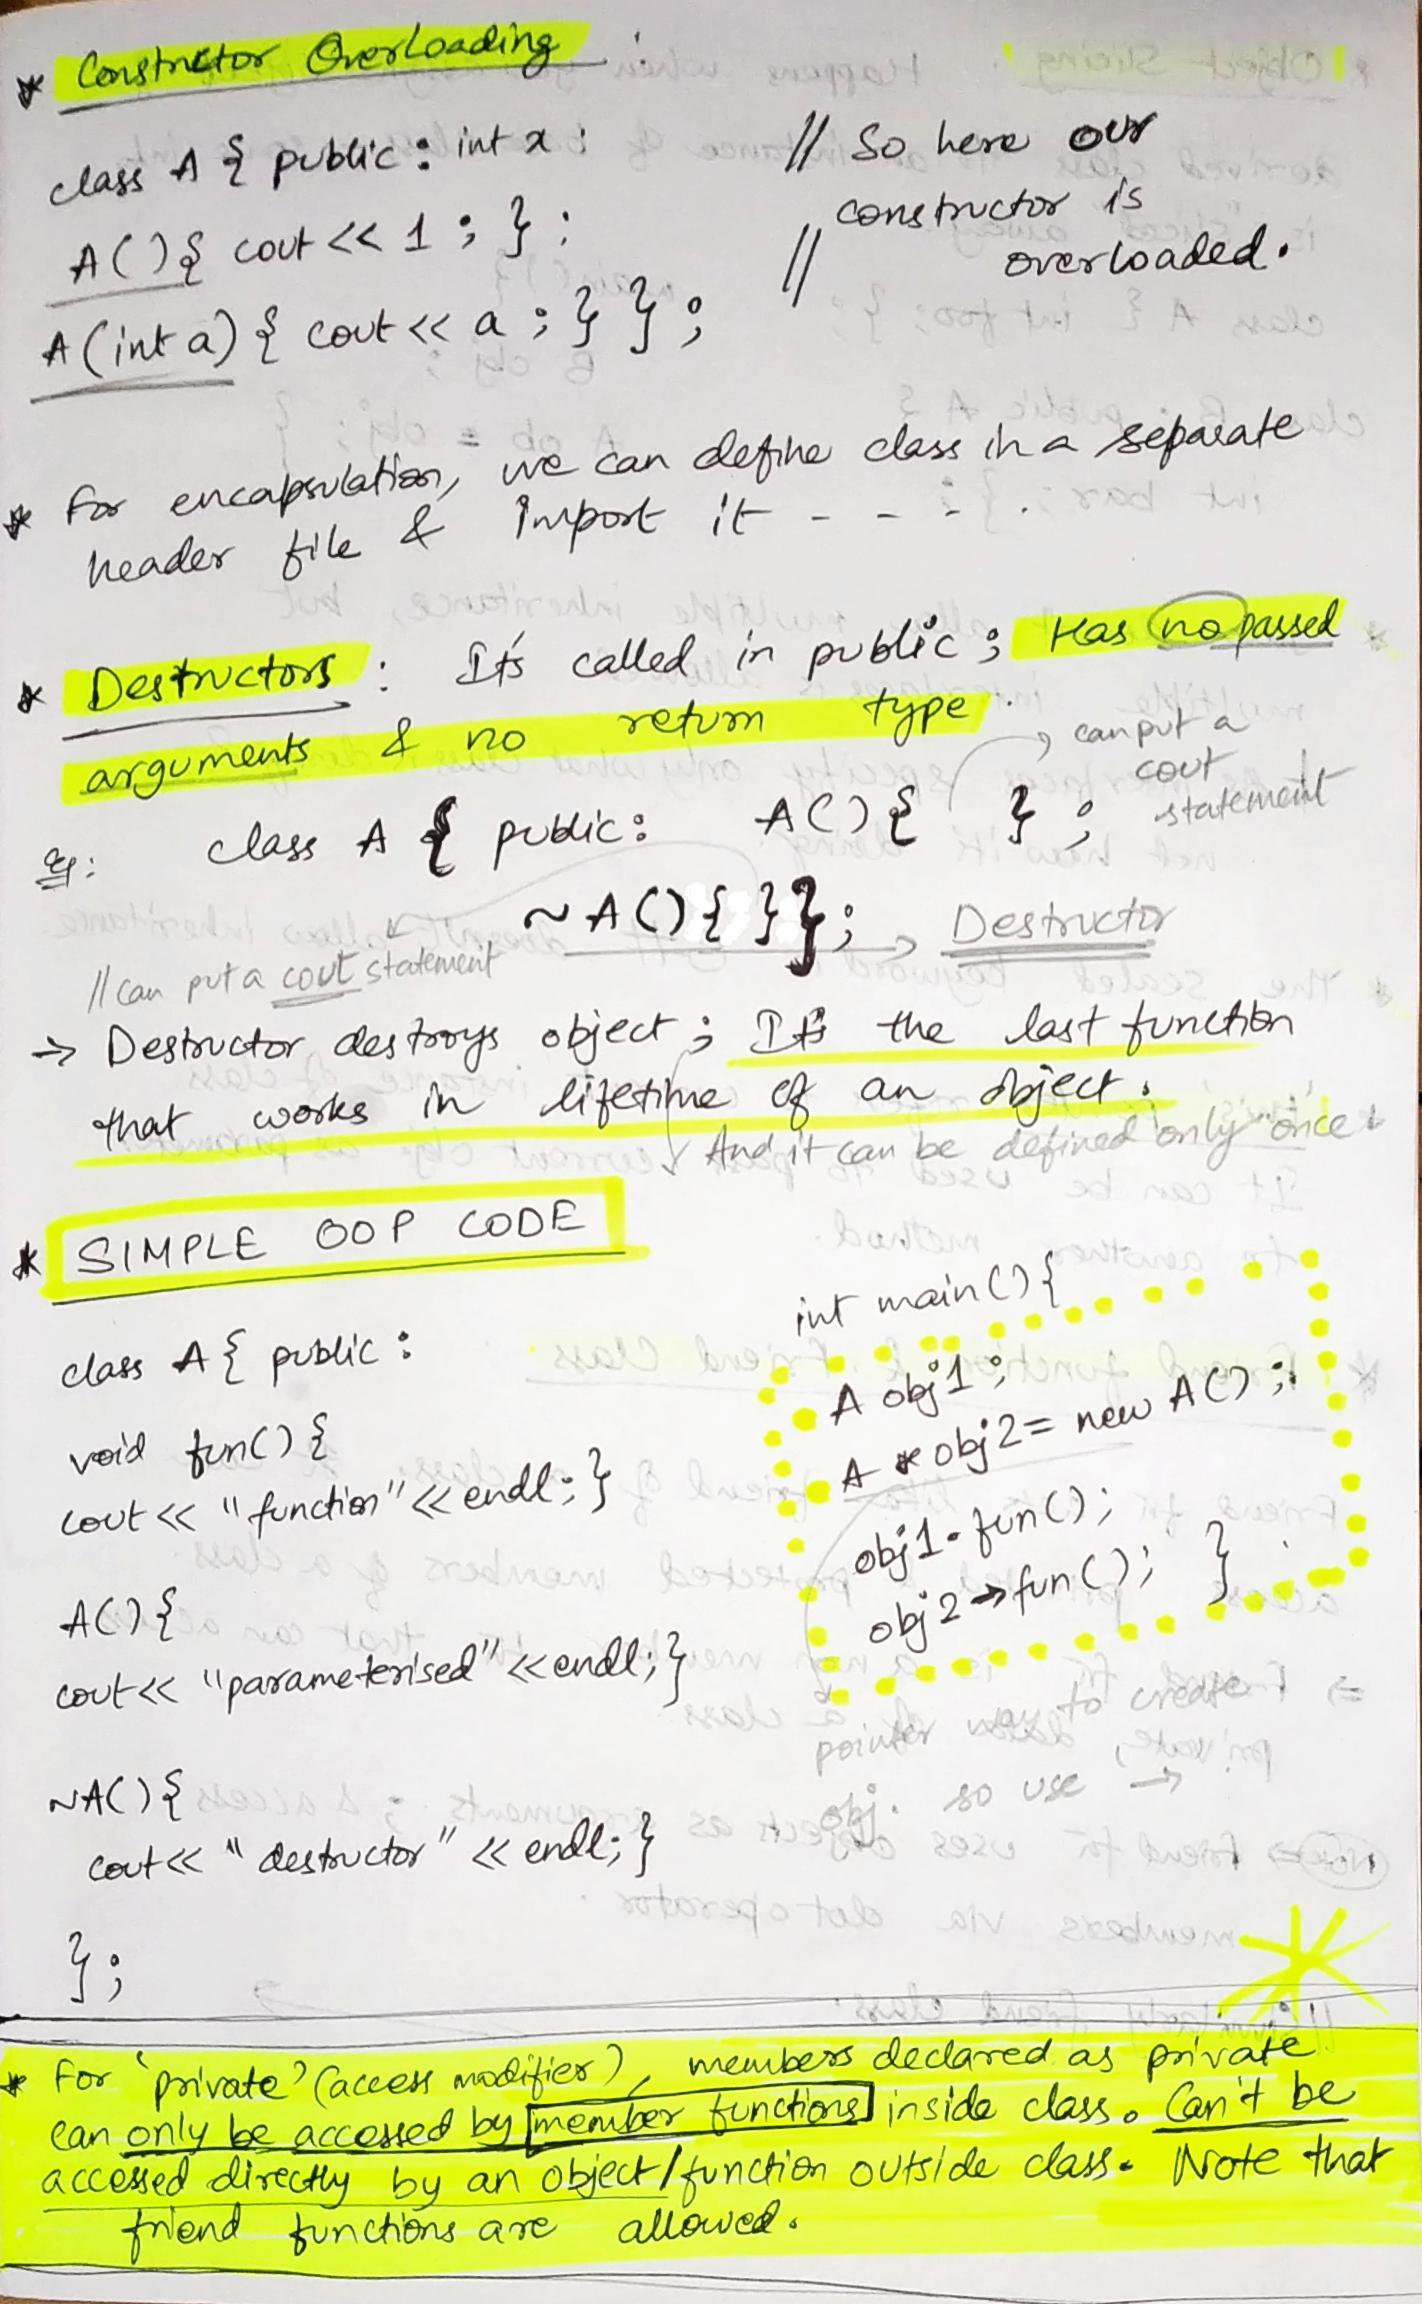 * Constructor Overloading :
class A { public : int x ;
A() { cout << 1 ; } ;
A(int a) { cout << a ; } } ;
// So here our
constructor is
// overloaded.
* For encapsulation, we can define class in a separate
header file & import it - - - -
* Destructors : It's called in public ; Has no passed
arguments & no return type .
can put a
cout
statement
eg: class A { public : A() { } ;
~A(){ }}; → Destructor
// can put a cout statement
→ Destructor destroys object ; It's the last function
that works in lifetime of an object.
And it can be defined only once
* SIMPLE OOP CODE
class A { public :
void fun() {
cout << "function" << endl; }
A() {
cout << "parameterised" << endl; }
~A() {
cout << "destructor" << endl; }
} ;
int main() {
A obj1 ;
A * obj2 = new A() ;
obj1.fun() ;
obj2→fun() ; }
pointer way to create
obj. so use →
* For 'private' (access modifier), members declared as private
can only be accessed by [member functions] inside class. Can't be
accessed directly by an object/function outside class. Note that
friend functions are allowed.